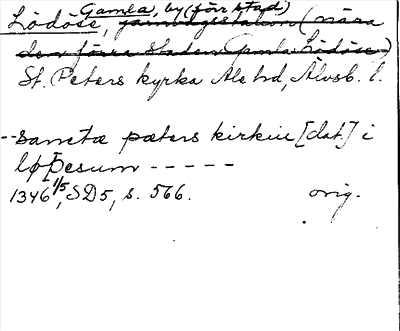 Gamla, by (förr stad)
Lödöse, järnvägsstation (nära
den förra staden Gamla Lödöse)
St. Peters kyrka Ale hd, Älvsb. l.
-- sanctæ pæters kirkiu [dat.] i
løþesum - - - - -
1346 1/5, SD 5, s. 566. orig.